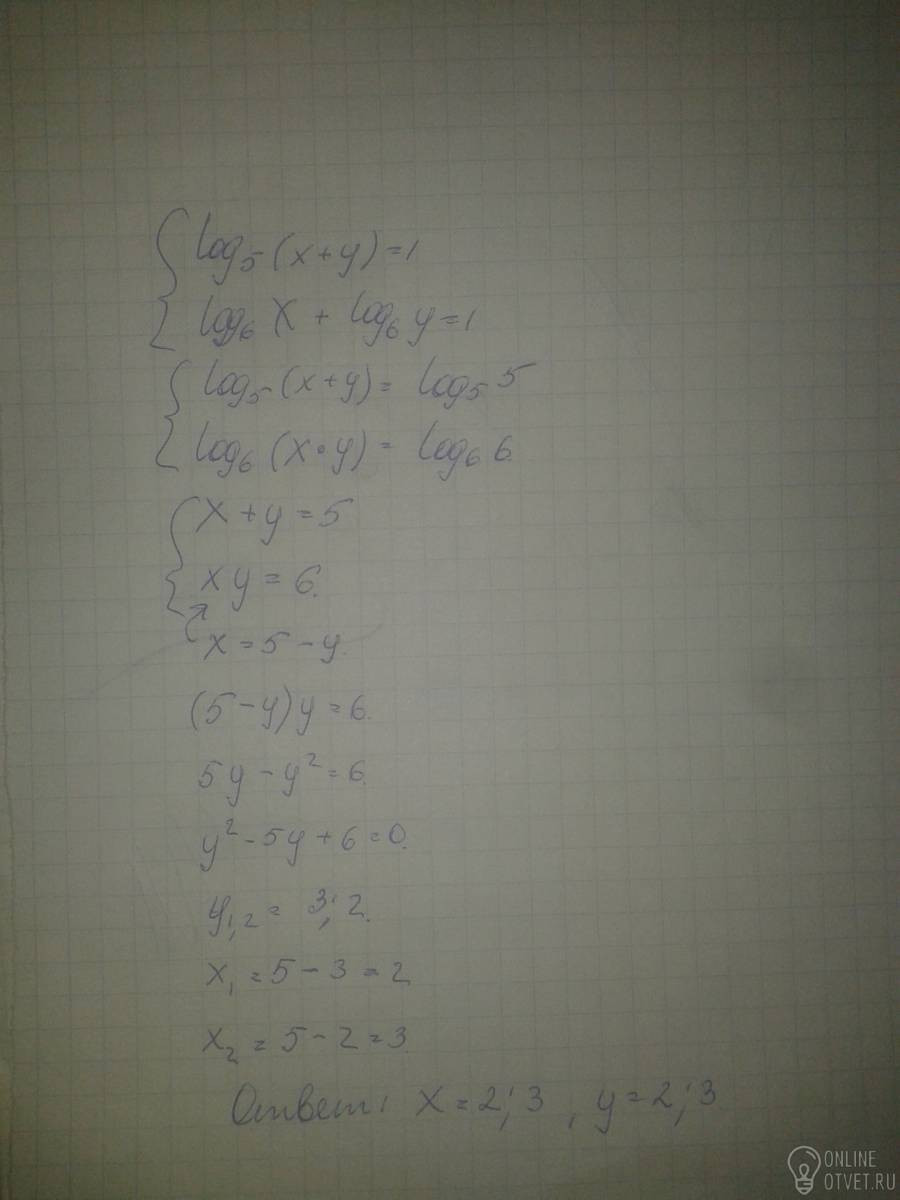 log₅(x+y)=1
log₆ x + log₆ y=1
log₅(x+y)= log₅ 5
log₆(x·y)= log₆ 6.
x+y=5
xy=6.
x=5-y.
(5-y)y=6.
5y-y²=6.
y²-5y+6=0.
y₁,₂= 3; 2.
x₁=5-3=2
x₂=5-2=3.
Ответ: x=2; 3, y=2; 3
ONLINE
OTVET.RU